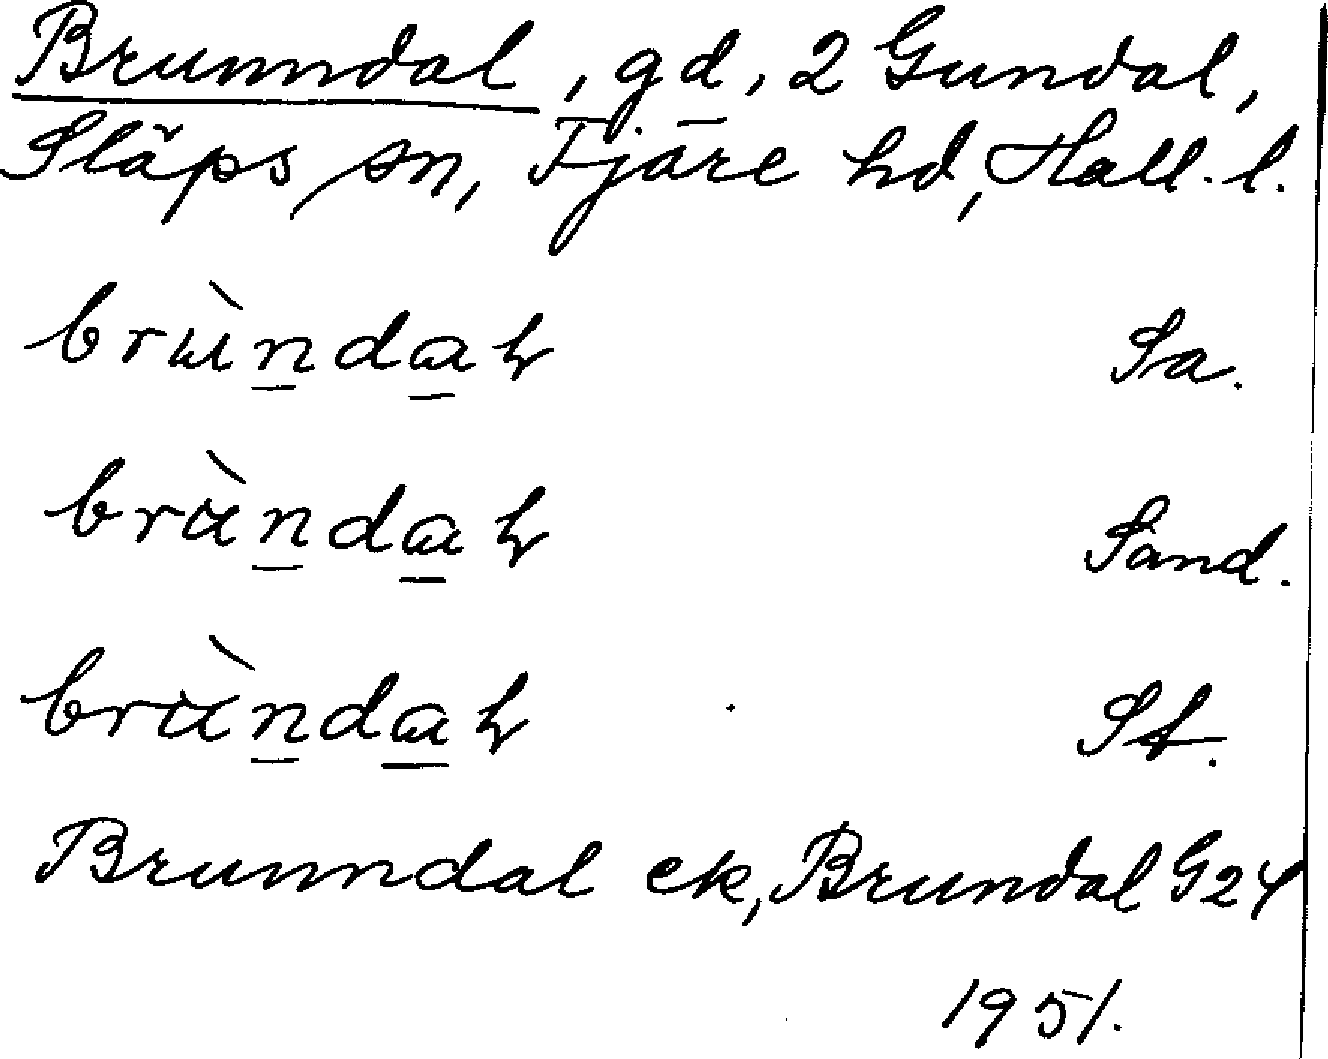 Brunndal, gd, 2 Gundal,
Släps sn, Fjäre hd, Hall. l.
brùndaɬ Sa.
brùndaɬ Sand.
brùndaɬ St.
Brunndal ek, Brundal G24
1951.